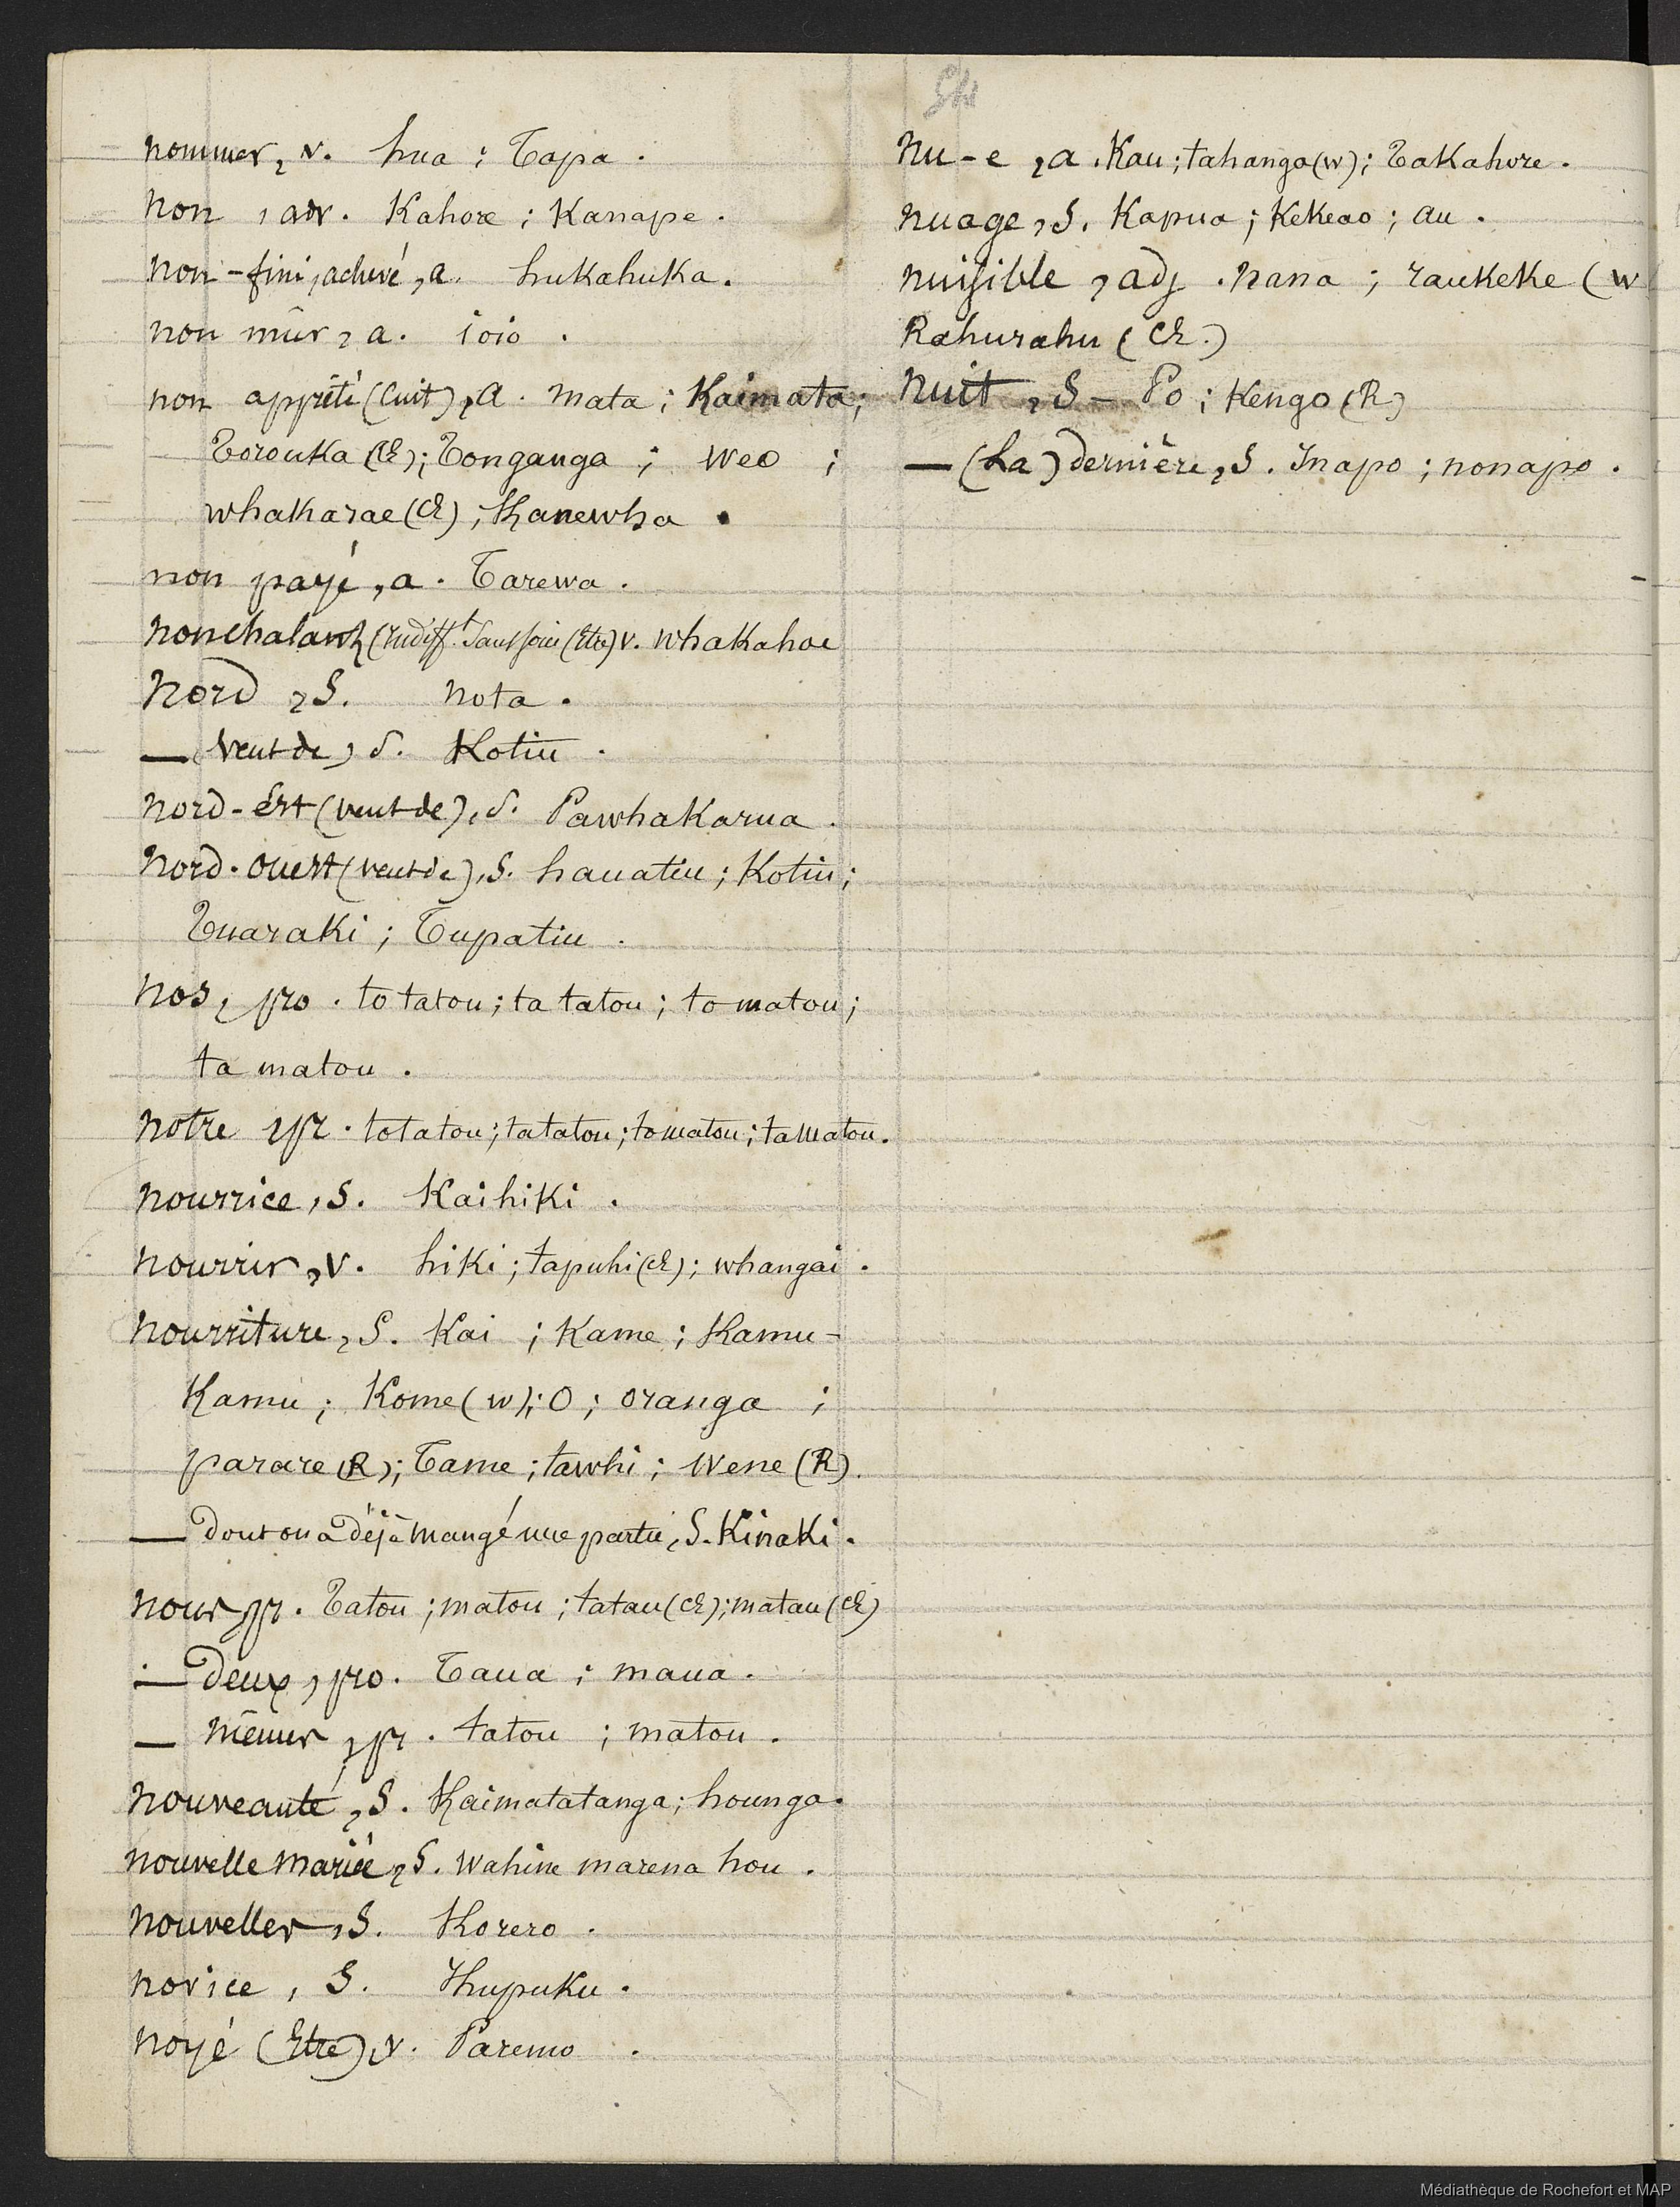 nommer, v. hua ; Tapa .
non , adv. Kahore ; Kanape .
non-fini, achevé, a. hukahuka .
non mûr, a. ioio .
non apprêté (cuit), a. mata ; Kaimata ;
Torouka (CE) ; Tonganga ; weo ;
whakarae (CE) ; Kanewha .
non payé, a. Tarewa .
nonchalant, (indifft. sans soin (Etre) v. whakahoe
nord , S. nota .
— (vent de), S. Kotiu .
nord-est (vent de), S. Pawhakarua .
nord-ouest (vent de), S. hauatiu ; Kotiu ;
Tuaraki ; Tupatiu .
nos, pro. to tatou ; ta tatou ; to matou ;
ta matou .
notre , pr. totatou ; tatatou ; tomatou ; tamatou .
nourrice, S. Kaihiki .
nourrir, v. hiki ; tapuhi (CE) ; whangai .
nourriture, S. Kai ; Kame ; Kamu-
Kamu ; Kome (w) ; O ; oranga ;
parare (R) ; Tame ; tawhi ; wene (R) .
— dont on a déjà mangé une partie, S. Kinaki .
nous, pr. Tatou ; matou ; tatau (CE) ; matau (CE)
— deux, pro. Taua ; maua .
— mêmes, pr. tatou ; matou .
nouveauté, S. Kaimatatanga ; hounga .
nouvelle mariée, S. wahine marena hou .
nouvelles, S. Korero .
novice, S. Ihupuku .
noyé (Etre), v. Paremo .
nu-e , a. Kau ; tahanga (w) ; Takahore .
nuage, S. Kapua ; Kekeao ; au .
nuisible , adj . nana ; raukeke (w
Rahurahu (CE.)
nuit , S – Po ; Kengo (R)
— (La) dernière, S. Inapo ; nonapo .
Médiathèque de Rochefort et MAP